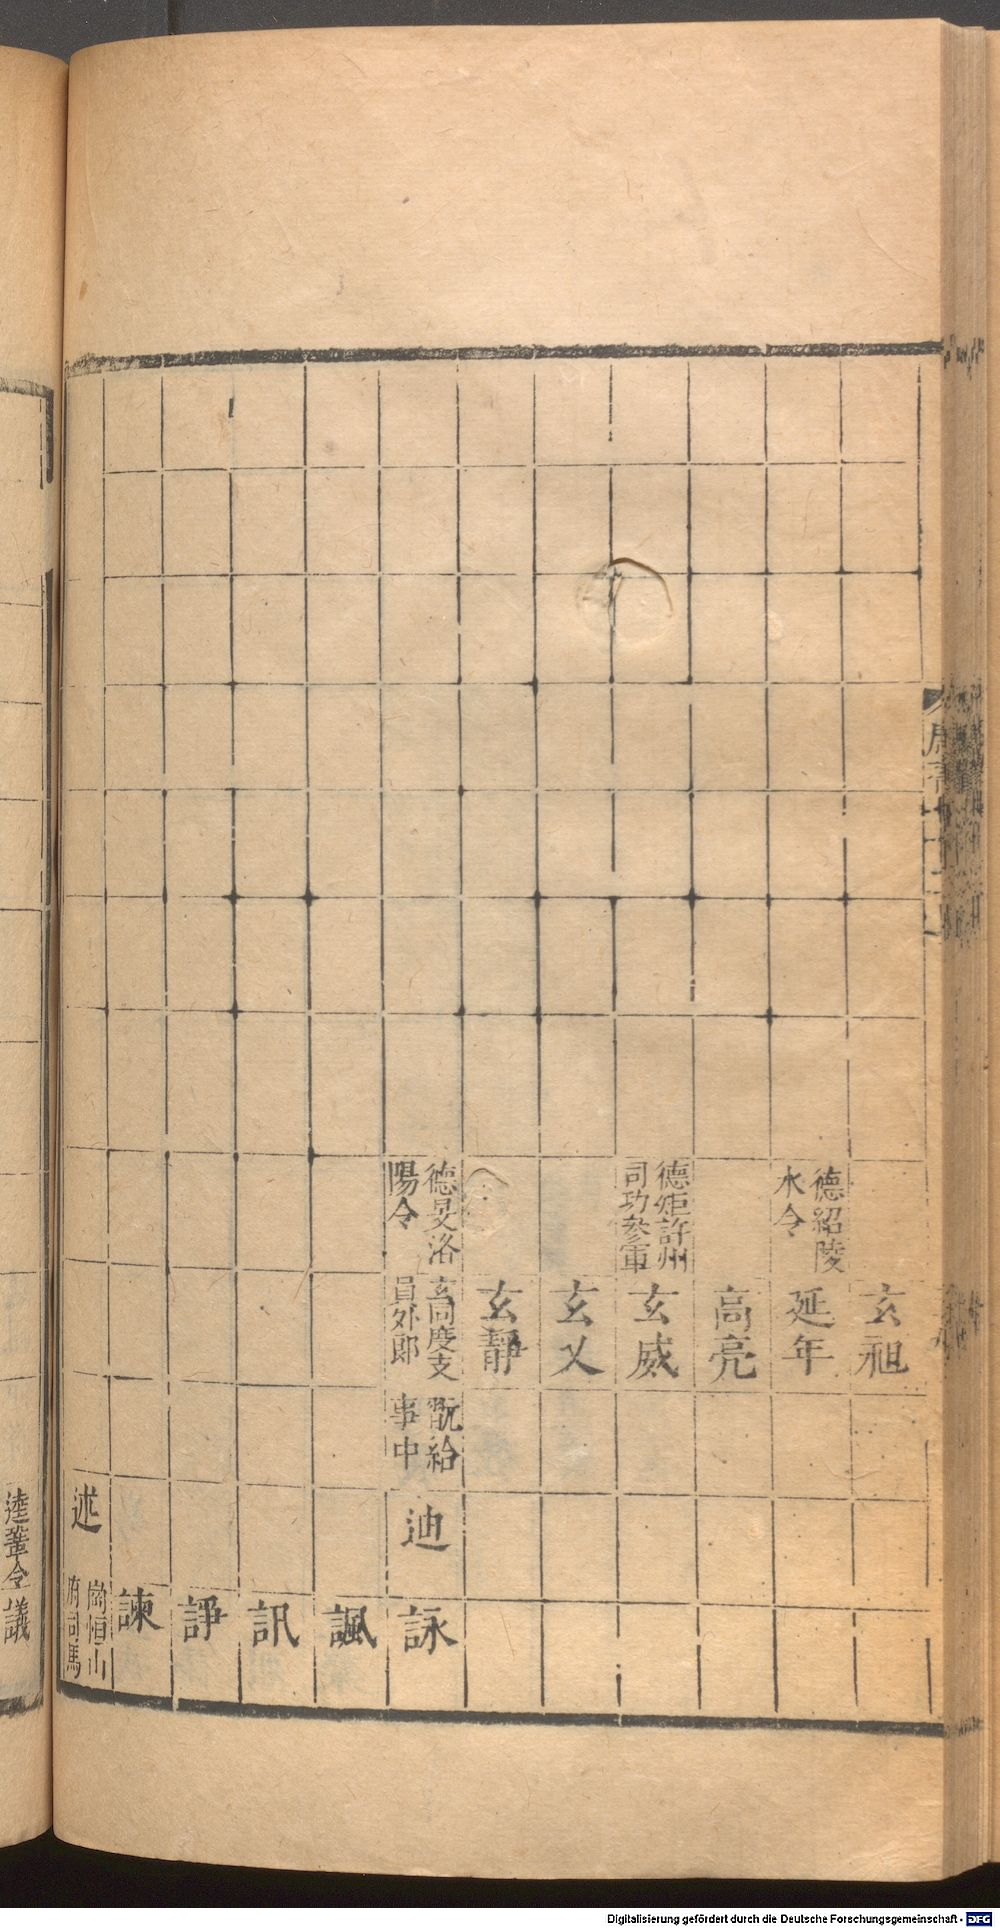 玄祖
德紹陵
水令
延年
高亮
德矩許州
司功參軍
玄威
玄乂
玄靜
德旻洛
陽令
玄同度支
員外郎
翫給
事中
迪
詠
諷
訊
諍
諫
述
府司馬
鞏令
議
Digitalisierung gefördert durch die Deutsche Forschungsgemeinschaft - DFG